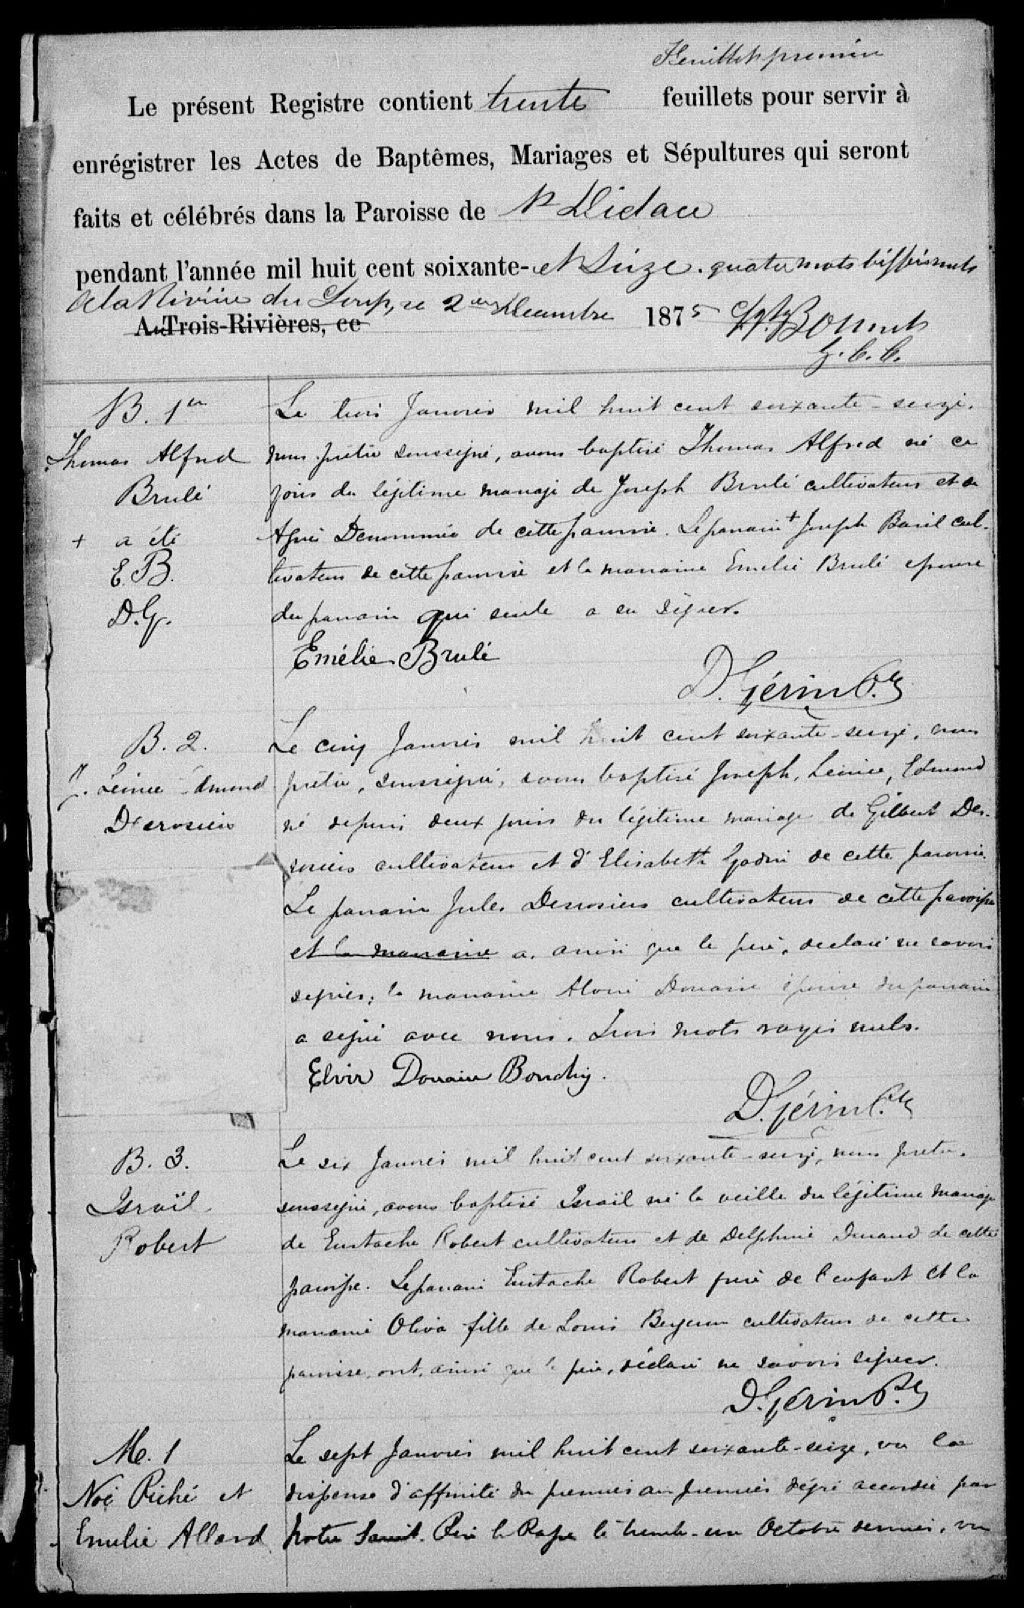 Feuillet premier
Le présent Registre contient trente feuillets pour servir à
enrégistrer les Actes de Baptêmes, Mariages et Sépultures qui seront
faits et célébrés dans la Paroisse de St Didace
pendant l'année mil huit cent soixante-et Seize. quatre mots biffés nuls
A la Rivière du Loup, ce 2 Décembre 1875
A Trois-Rivières, ce
G. C. C.
B. 1er
Thomas Alfred
Brulé
+ a été
E. B.
D. G.
Le trois Janvier mil huit cent soixante-seize.
nous prêtre soussigné, avons baptisé Thomas Alfred né ce
jour du légitime mariage de Joseph Brulé cultivateur et de
Denommée de cette paroisse. Le parrain + Joseph Baril cul-
tivateur de cette paroisse et la marraine Emelie Brulé épouse
du parrain qui seule a su signer.
Emélie Brulé
D. Gérin Ptre
B. 2.
J. Edmond
Desrosiers
Le cinq Janvier mil huit cent soixante-seize, nous
prêtre, soussigné, avons baptisé Joseph, Edmond
né depuis deux jours du légitime mariage de Gilbert Des-
rosiers cultivateur et d'Elisabeth Godin de cette paroisse.
Le parrain Jules Desrosiers cultivateur de cette paroisse
et la marraine a, ainsi que le père, déclaré ne savoir
signer; la marraine épouse du parrain
a signé avec nous. Trois mots rayés nuls.
D. Gérin Ptre
B. 3.
Israïl
Robert
Le six Janvier mil huit cent soixante-seize, nous prêtre
soussigné, avons baptisé Israil né la veille du légitime mariage
de Eustache Robert cultivateur et de Delphine Durand de cette
paroisse. Le parrain Eustache Robert frère de l'enfant et la
marraine Oliva fille de Louis Bergeron cultivateur de cette
paroisse, ont, ainsi que le père, déclaré ne savoir signer.
D. Gérin Ptre
M. 1
Noé Piché et
Emelie Allard
Le sept Janvier mil huit cent soixante-seize, vu la
dispense d'affinité du premier au premier dégré accordée par
Notre Saint Père le Pape le trente-un Octobre dernier, vu